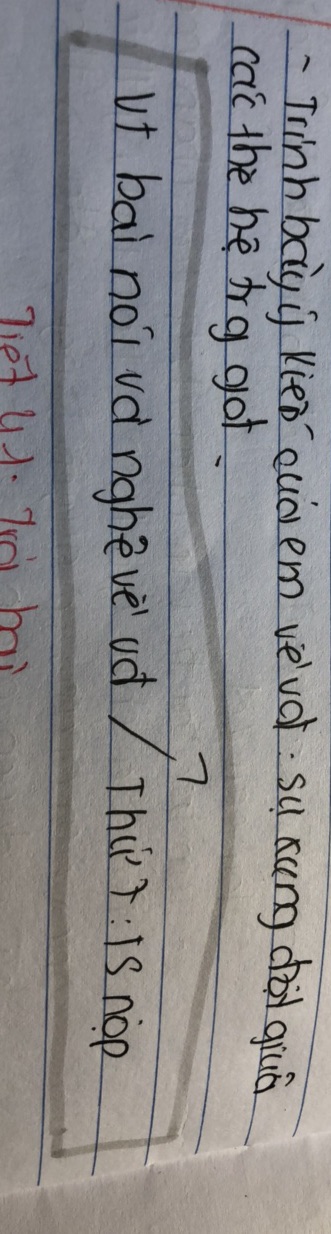 - Trình bày ý kiến của em về vđ: sự xung đột giữa
các thế hệ trg gđ.
Vt bài nói và nghe về vđ / Thứ 7: 15 nộp
7
Tiết 41: Trả bài